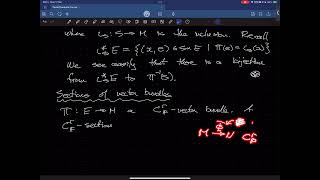 where ι₀ : S → M is the inclusion. Recall
ι₀* E = {(x, e) ∈ S × E | π(e) = ι₀(x)}
We see easily that there is a bijection
from ι₀* E to π⁻¹(S).
Sections of vector bundles
π : E → M a C^r-vector bundle. A
C^r-section
M → N C^r